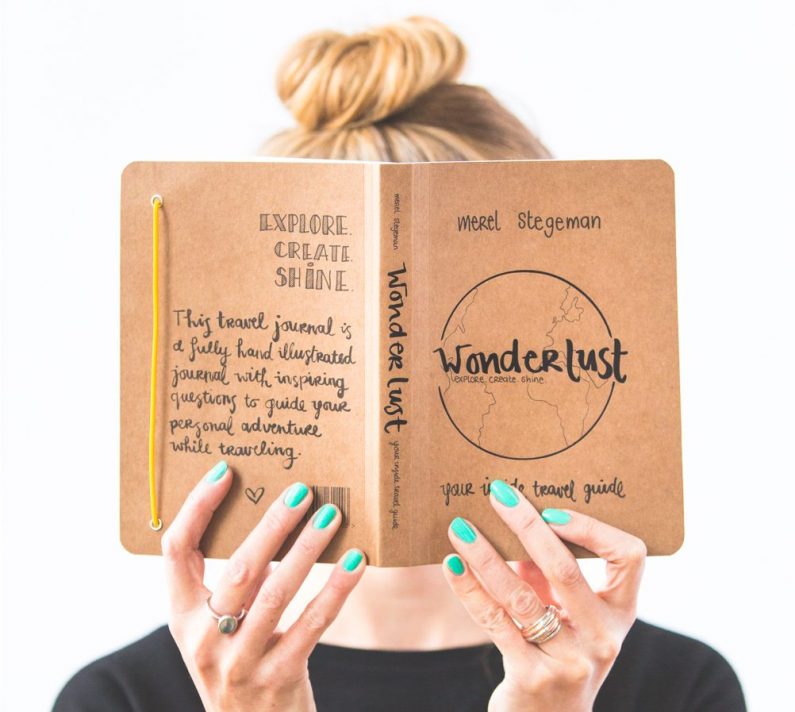 EXPLORE.
CREATE.
SHINE.
This travel journal is
a fully hand illustrated
journal with inspiring
questions to guide your
personal adventure
while traveling.
merel stegeman
Wonderlust
your inside travel guide
merel stegeman
wonderlust
explore. create. shine.
your inside travel guide